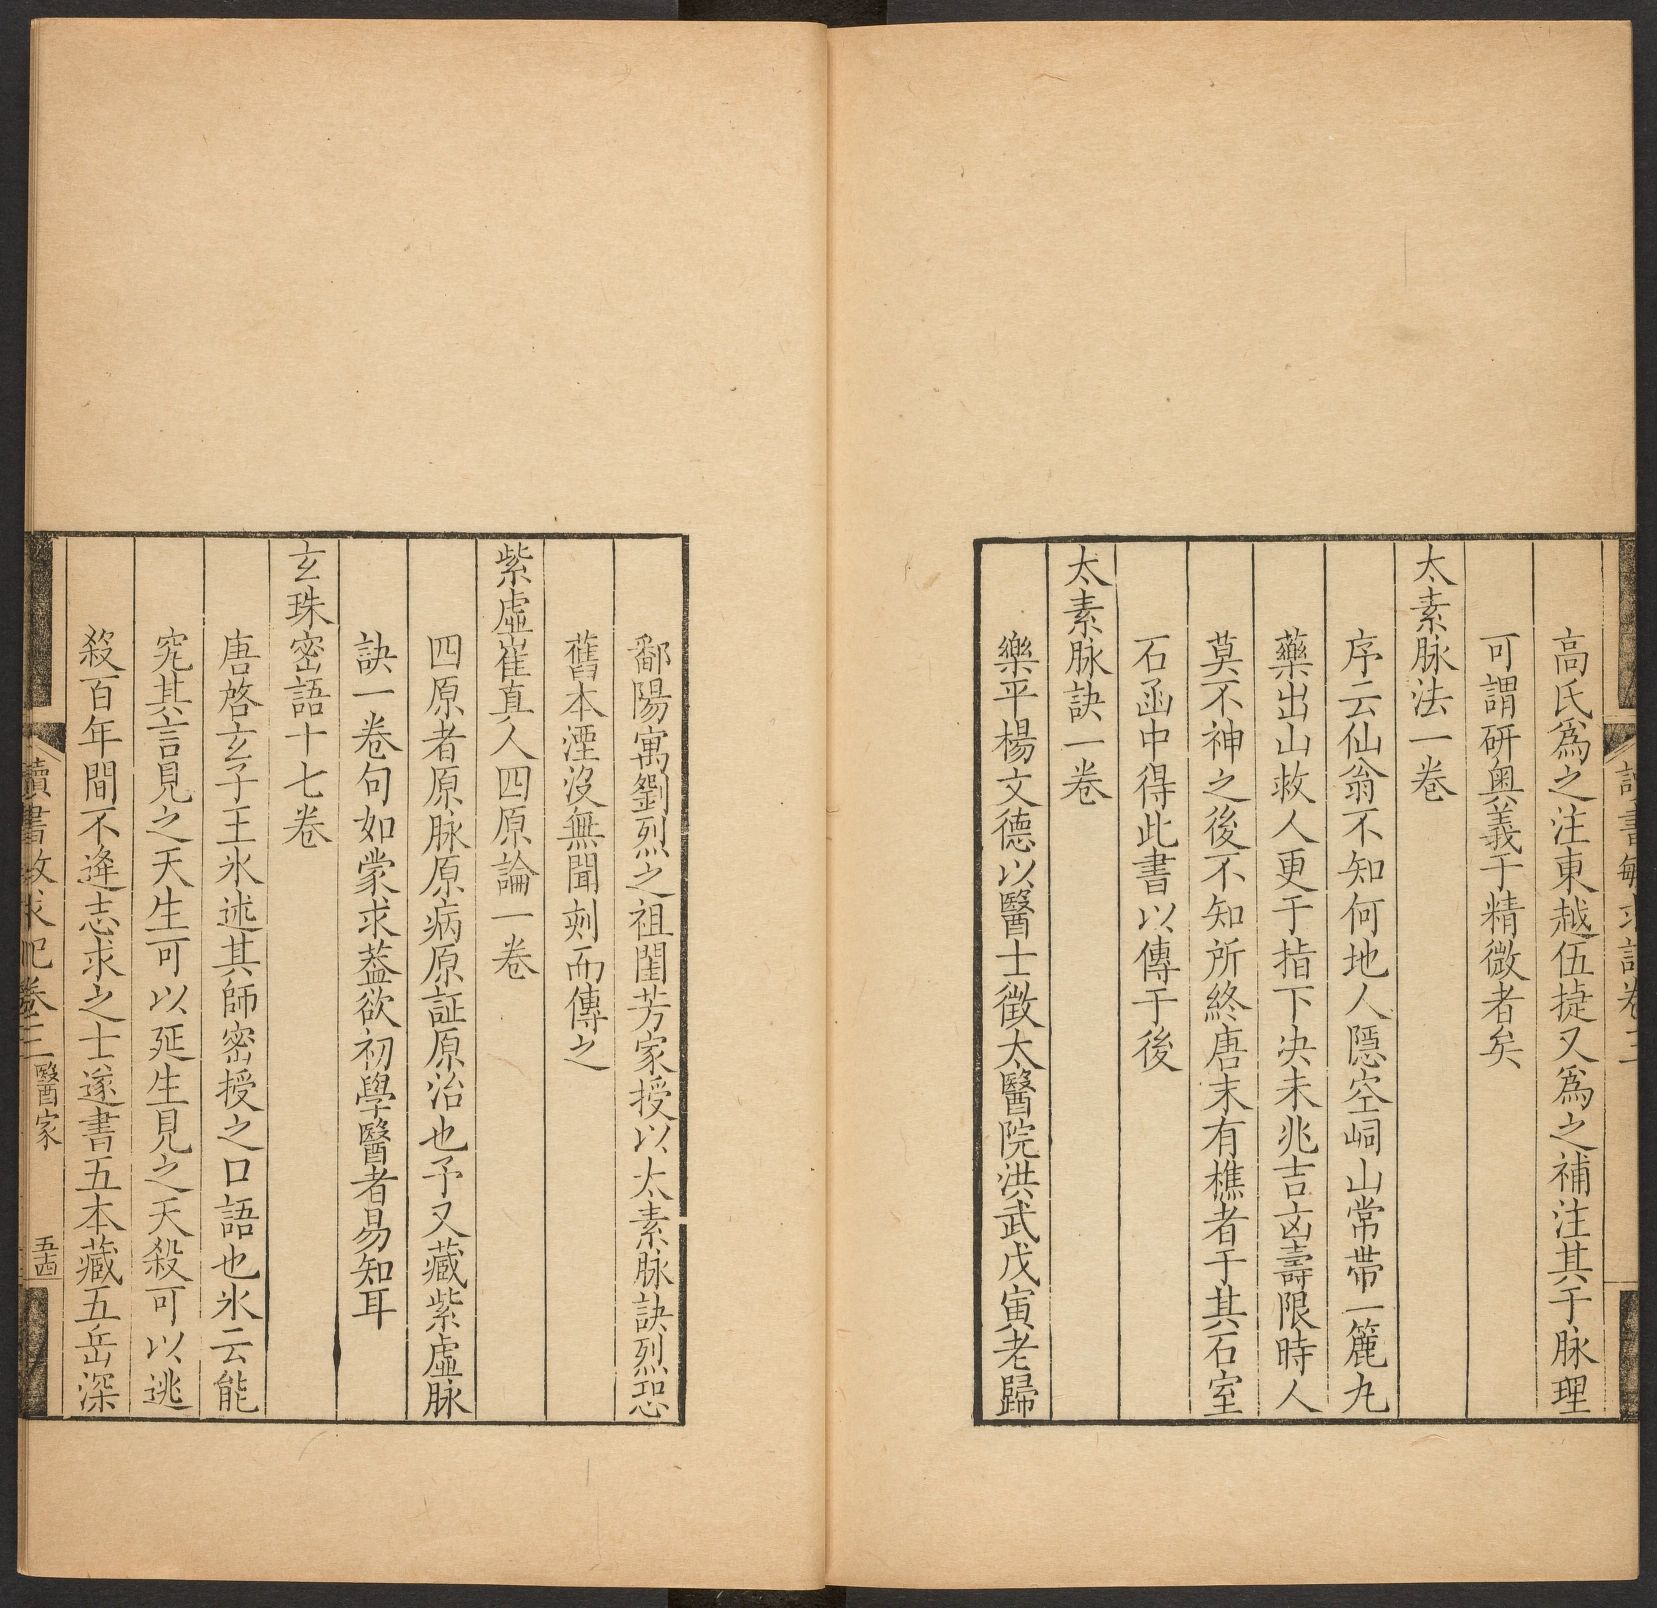 高氏為之注東越伍㨗又為之補注其于脉理
可謂研奥義于精微者矣
太素脉法一卷
序云仙翁不知何地人隱空峒山常帶一簏九
藥出山救人更于指下决未兆吉凶壽限時人
莫不神之後不知所終唐末有樵者于其石室
石函中得此書以傳于後
太素脉訣一卷
樂平楊文德以醫士徵太醫院洪武戊寅老歸
鄱陽寓劉烈之祖閨芳家授以太素脉訣烈恐
舊本湮没無聞刻而傳之
紫虛崔真人四原論一卷
四原者原脉原病原証原治也予又藏紫虛脉
訣一卷句如蒙求葢欲初學醫者易知耳
玄珠密語十七卷
唐啓玄子王氷述其師密授之口語也氷云能
究其言見之天生可以延生見之天殺可以逃
殺百年間不逄志求之士遂書五本藏五岳深
讀書敏求記卷三 醫家 五十四